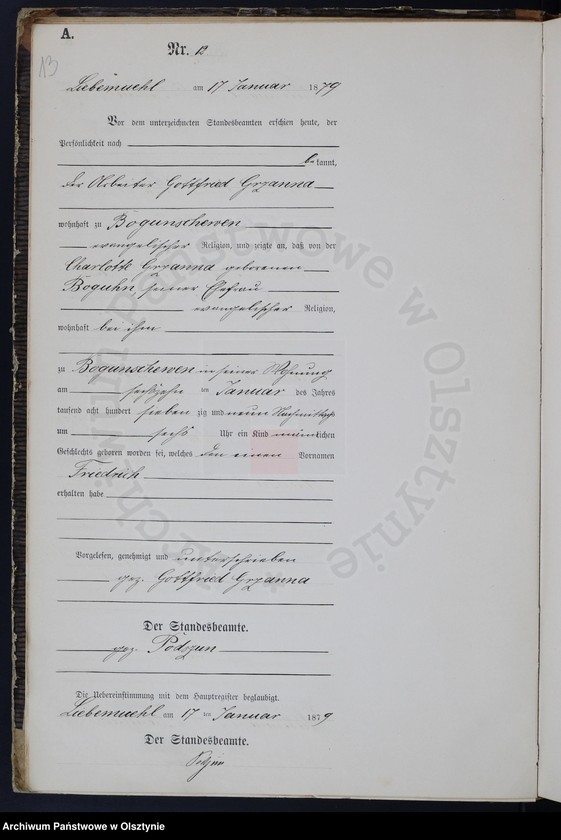 A.
Nr. 12
13
Liebemuehl am 17 Januar 1879
Vor dem unterzeichneten Standesbeamten erschien heute, der
Persönlichkeit nach
be kannt,
der Arbeiter Gottfried Grzanna
wohnhaft zu Bogunschewen
evangelischer Religion, und zeigte an, daß von der
Charlotte Grzanna geborenen
Boguhn, seiner Ehefrau
evangelischer Religion,
wohnhaft bei ihm
zu Bogunschewen in seiner Wohnung
am sechszehn ten Januar des Jahres
tausend acht hundert sieben zig und neun Nachmittags
um sechs Uhr ein Kind männlichen
Geschlechts geboren worden sei, welches den einen Vornamen
Friedrich
erhalten habe
Vorgelesen, genehmigt und unterschrieben
gez. Gottfried Grzanna
Der Standesbeamte.
gez. Podszun
Die Uebereinstimmung mit dem Hauptregister beglaubigt.
Liebemuehl am 17 ten Januar 1879
Der Standesbeamte.
Podszun
Archiwum Państwowe w Olsztynie
Archiwum Państwowe w Olsztynie